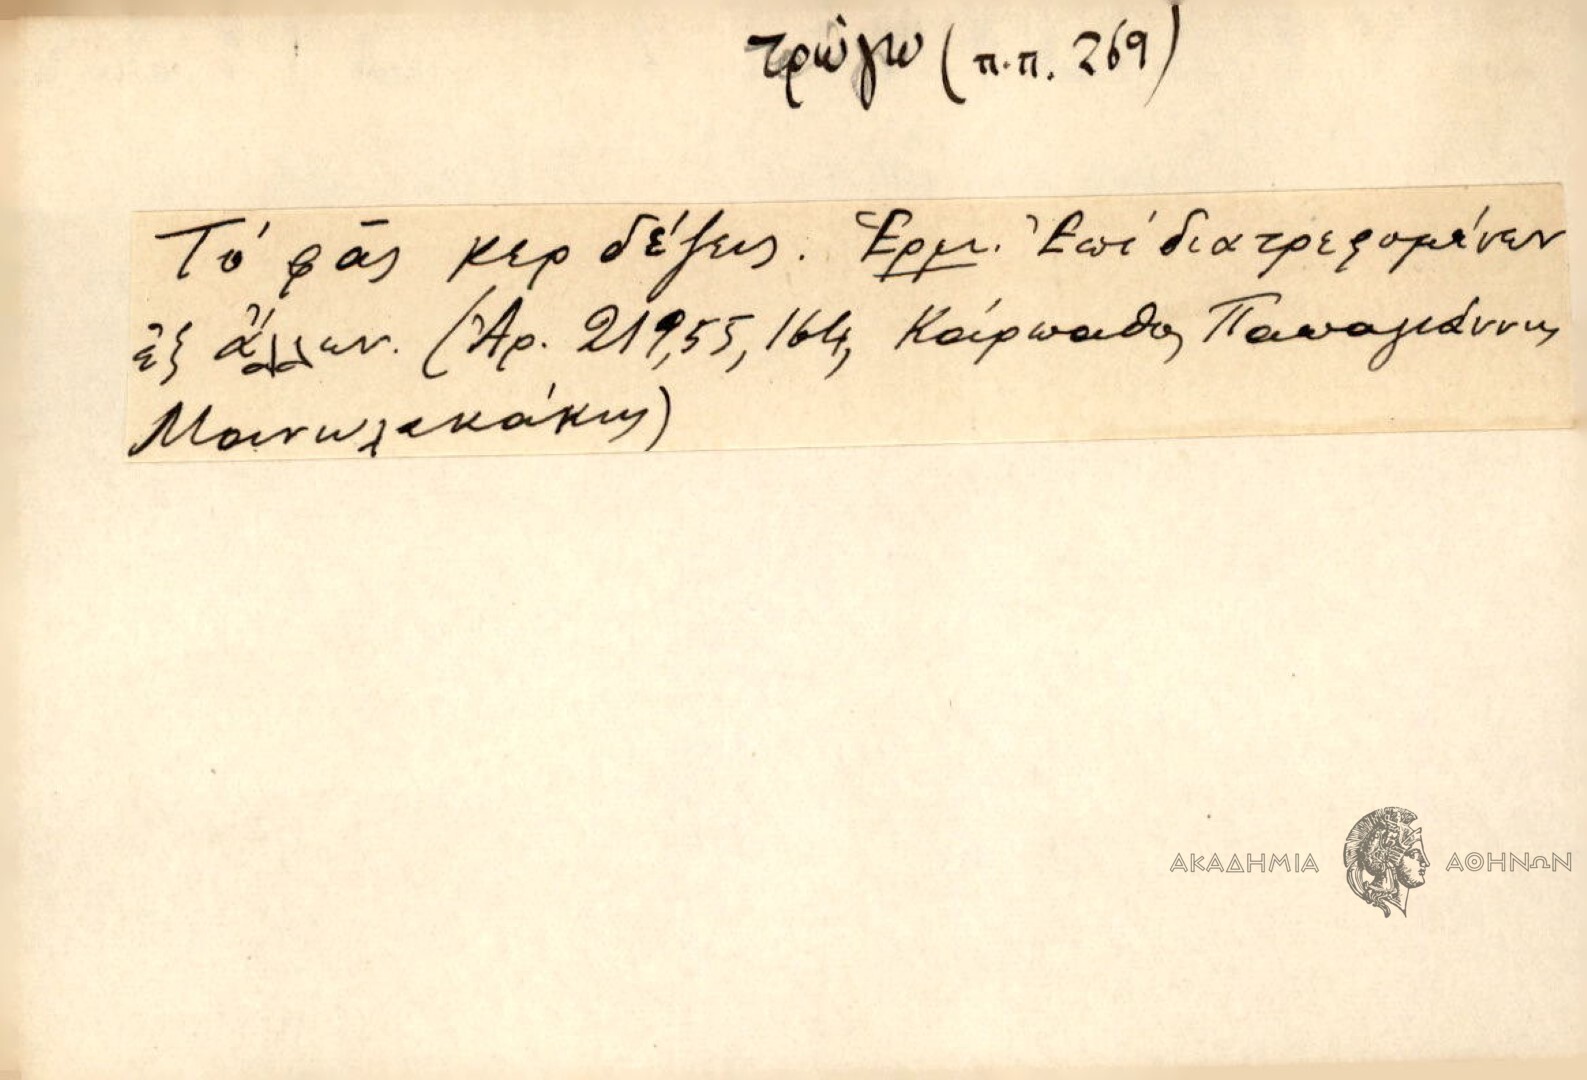 τρώγω (π.π. 269)
Τό φᾶς κερδέζεις. Ἑρμ. Ἐπί διατρεφομένων
ἐξ ἄλλων. (Ἀρ. 219, 55, 164, Κάρπαθος Παπαγιάννης
Μανωλακάκης)
ΑΚΑΔΗΜΙΑ ΑΘΗΝΩΝ